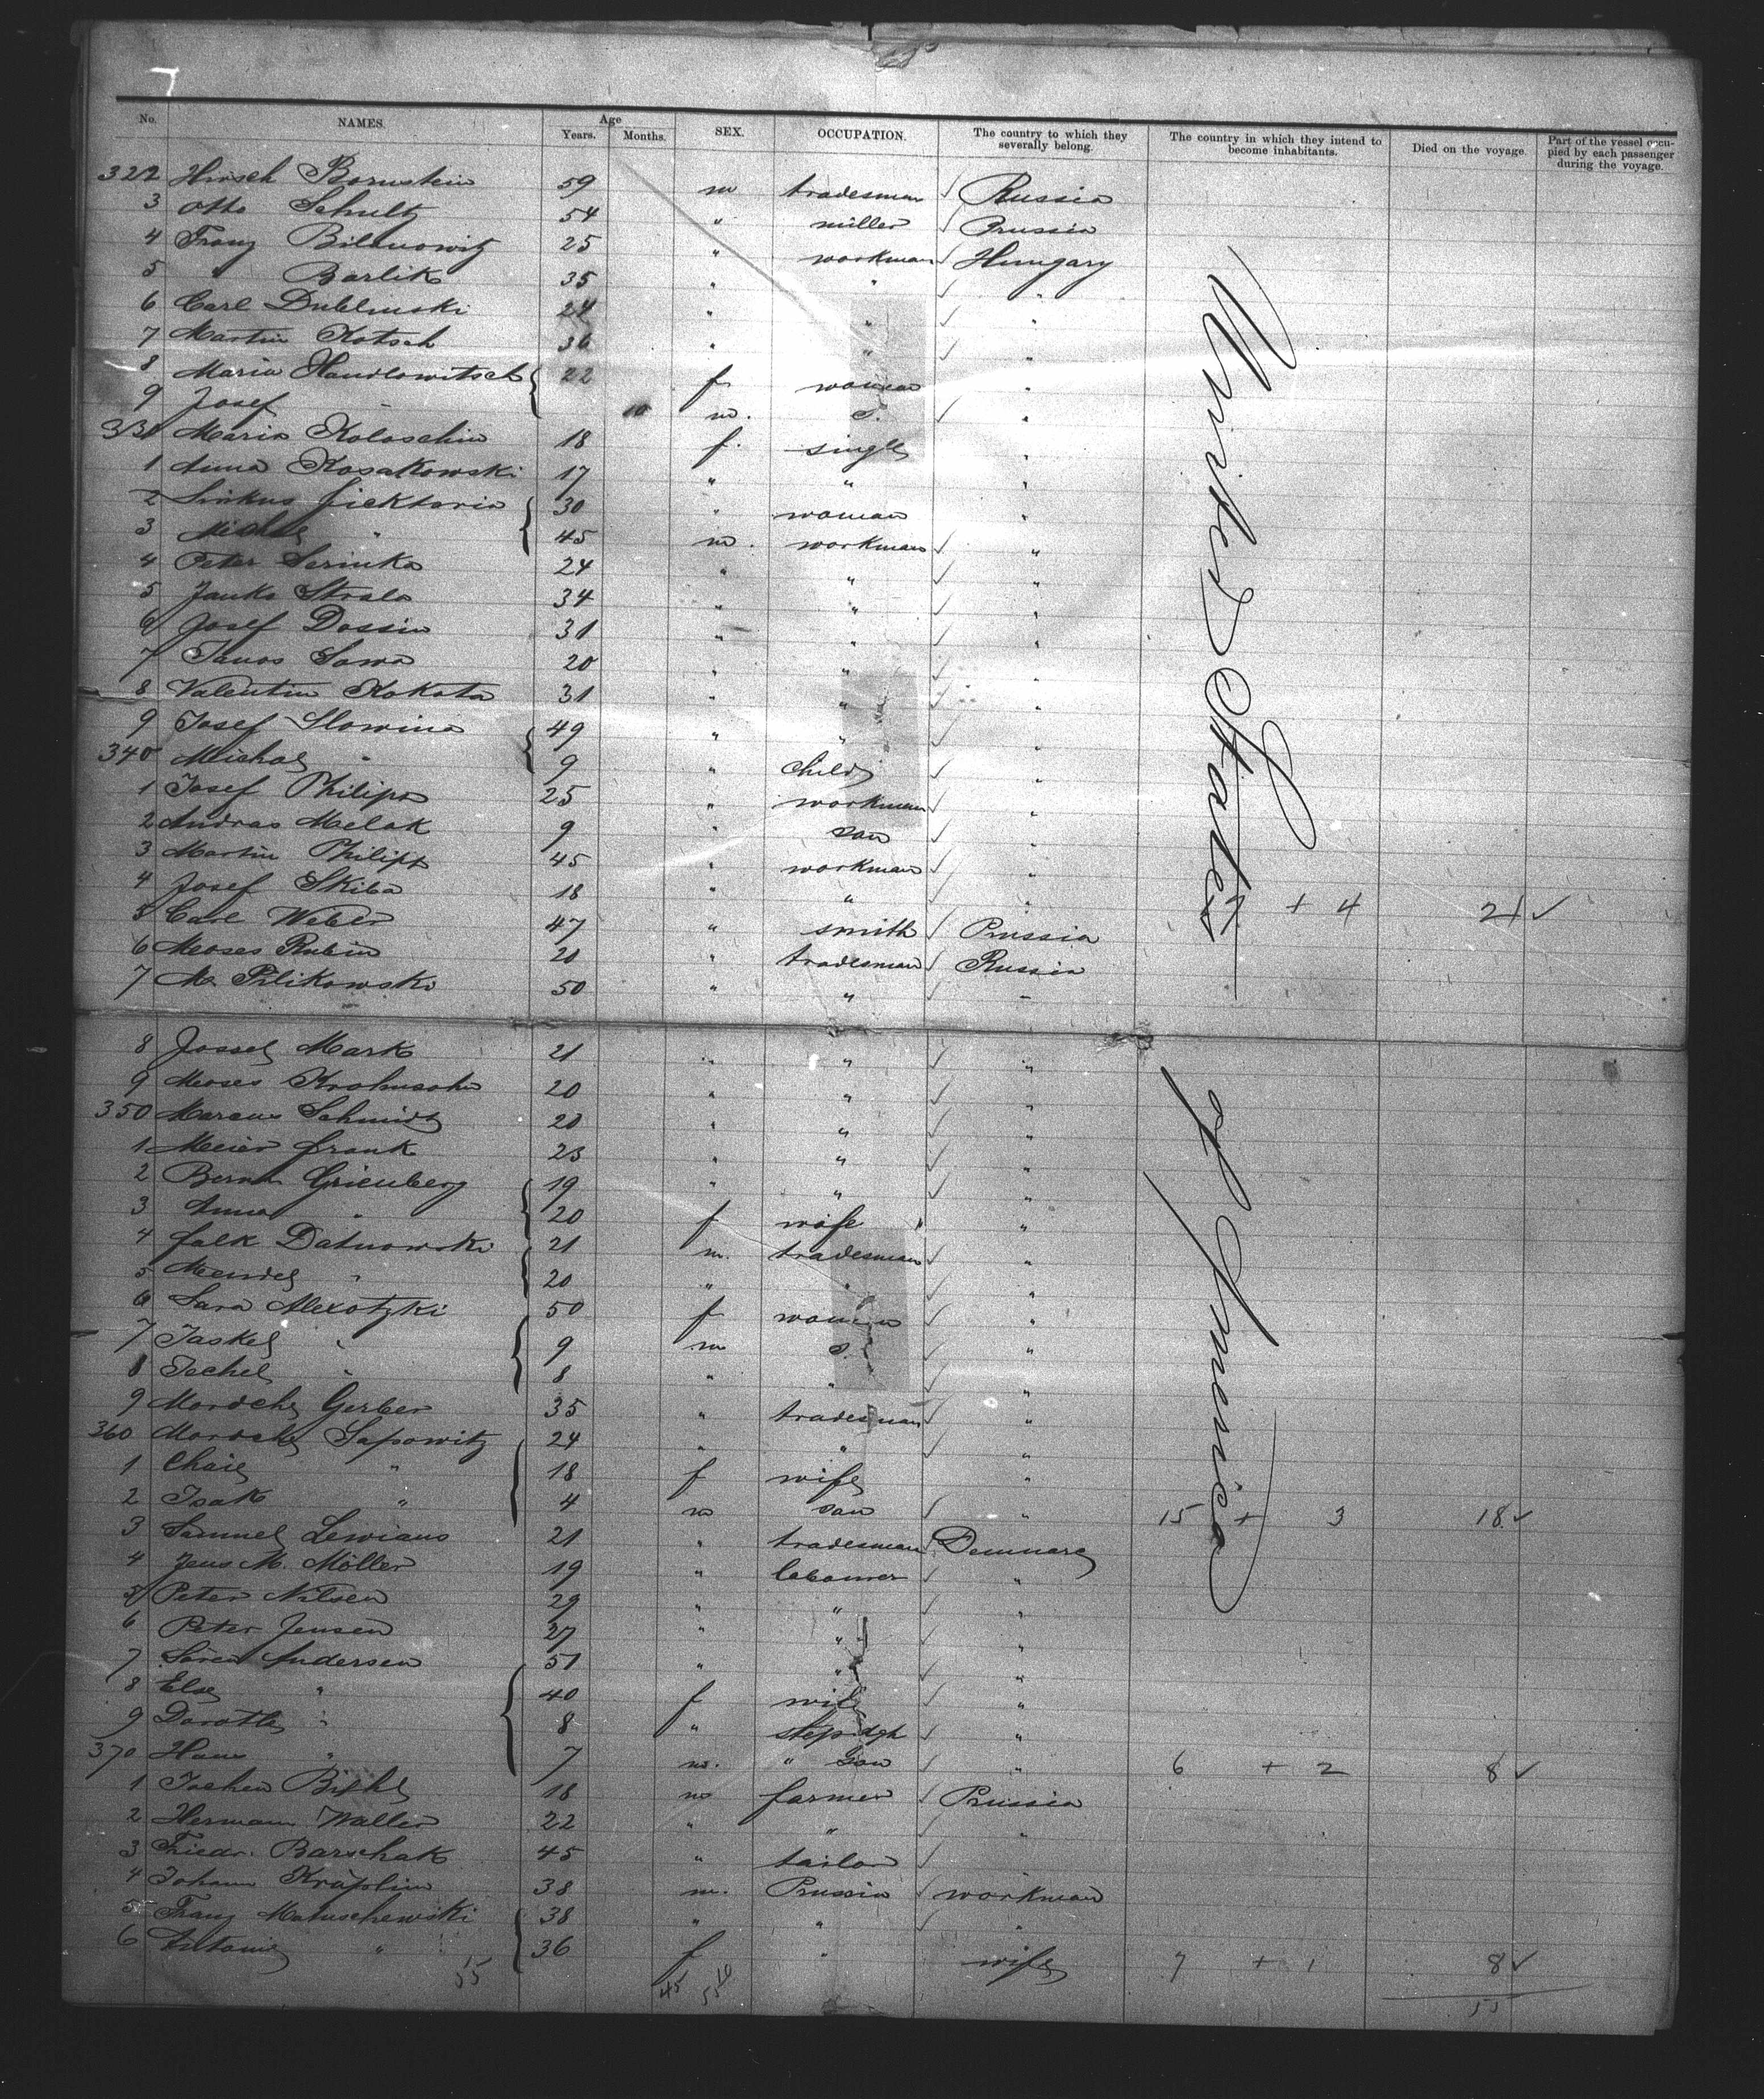 No. NAMES. Age Years. Months. SEX. OCCUPATION. The country to which they severally belong. The country in which they intend to become inhabitants. Died on the voyage. Part of the vessel occupied by each passenger during the voyage.
322 Hirsch Bornstein 59 m tradesman ✓ Russia
3 Otto Schultz 54 " miller ✓ Prussia
4 Franz 25 " workman ✓ Hungary
5 " Barlik 35 " " ✓ "
6 Carl Dublinski 24 " " ✓ "
7 Martin Kotsch 36 " " ✓ "
8 Maria Handlowitsch 22 f woman "
9 Josef 10 m. s. ✓ "
331 Maria Koloschin 18 f. single "
1 Anna Kosakowski 17 " " "
2 30 " woman "
3 Michel " 45 m. workman ✓ "
4 Peter Serinka 24 " " ✓ "
5 Janko Strala 34 " " ✓ "
6 Josef Dossin 31 " " ✓ "
7 Janos Sawa 20 " " ✓ "
8 Valentin Kokota 31 " " ✓ "
9 Josef Slowina 49 " " ✓ "
340 Michal " 9 " child ✓ "
1 Josef Philipp 25 " workman ✓ "
2 Andras Melak 9 " son ✓ "
3 Martin Philipp 45 " workman ✓ "
4 Josef Skiba 18 " " ✓ " + 4 21 ✓
5 Carl Weber 47 " smith ✓ Prussia
6 Moses Rubin 20 " tradesman ✓ Russia
7 M. Pilikowski 50 " " ✓ "
United States
8 Jossel Mark 21 " " ✓ "
9 Moses Krohnsohn 20 " " ✓ "
350 Marcus Schmidt 20 " " ✓ "
1 Meier Frank 23 " " ✓ "
2 Bernh Grienberg 19 " " ✓ "
3 Anna " 20 f wife "
4 Falk Datnowski 21 m. tradesman ✓ "
5 Mendel " 20 " " ✓ "
6 Sara Alexotzki 50 f woman "
7 Jaskel " 9 m s. ✓ "
8 Jechel " 8 " " ✓ "
9 Mordche Gerber 35 " tradesman ✓ "
360 Mordche Sapowitz 24 " " ✓ "
1 Chaie " 18 f wife "
2 Isak " 4 m son ✓ " 15 + 3 18 ✓
3 Samuel Lewians 21 " tradesman Denmark
4 Jens M. Möller 19 " labourer ✓ "
5 Peter Nilsen 29 " " ✓ "
6 Peter Jensen 27 " " ✓ "
7 Sören Andersen 51 " " ✓ "
8 Else " 40 f wife ✓ "
9 Dorothe " 8 " stepdgh ✓ "
370 Hans " 7 m. " son ✓ " 6 + 2 8 ✓
1 Jochen 18 m farmer ✓ Prussia
2 Hermann Waller 22 " " ✓ "
3 Friedr. Barschak 45 " tailor ✓ "
4 Johann Kräplin 38 m. Prussia ✓ workman
5 Franz Matuschewski 38 " " ✓ "
6 Antonie " 36 f " wife 7 + 1 8 ✓
of America
55 45 10 55 55